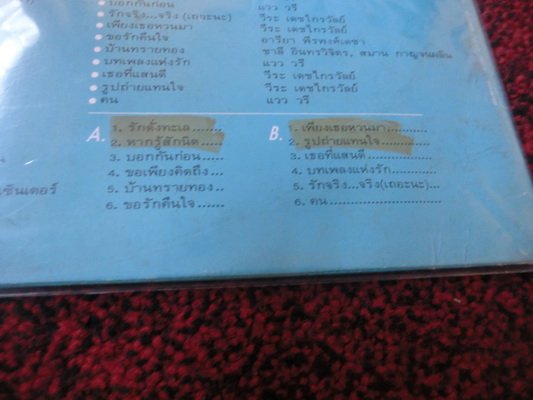 บอกกันก่อน แวว วรี
รักจริง...จริง (เถอะนะ) วีระ เตชไกรวัลย์
เพียงเธอหวนมา วีระ เตชไกรวัลย์
ขอรักคืนใจ อารียา พีรพงศ์เดชา
บ้านทรายทอง ชาลี อินทรวิจิตร, สมาน กาญจนผลิน
บทเพลงแห่งรัก แวว วรี
เธอที่แสนดี วีระ เตชไกรวัลย์
รูปถ่ายแทนใจ วีระ เตชไกรวัลย์
ฅน แวว วรี
A.
1. รักดั่งทะเล.......
2. หากรู้สักนิด.....
3. บอกกันก่อน.....
4. ขอเพียงคิดถึง...
5. บ้านทรายทอง..
6. ขอรักคืนใจ......
B.
1. เพียงเธอหวนมา...........
2. รูปถ่ายแทนใจ............
3. เธอที่แสนดี................
4. บทเพลงแห่งรัก..........
5. รักจริง...จริง(เถอะนะ)...
6. ฅน............................
เซ็นเตอร์